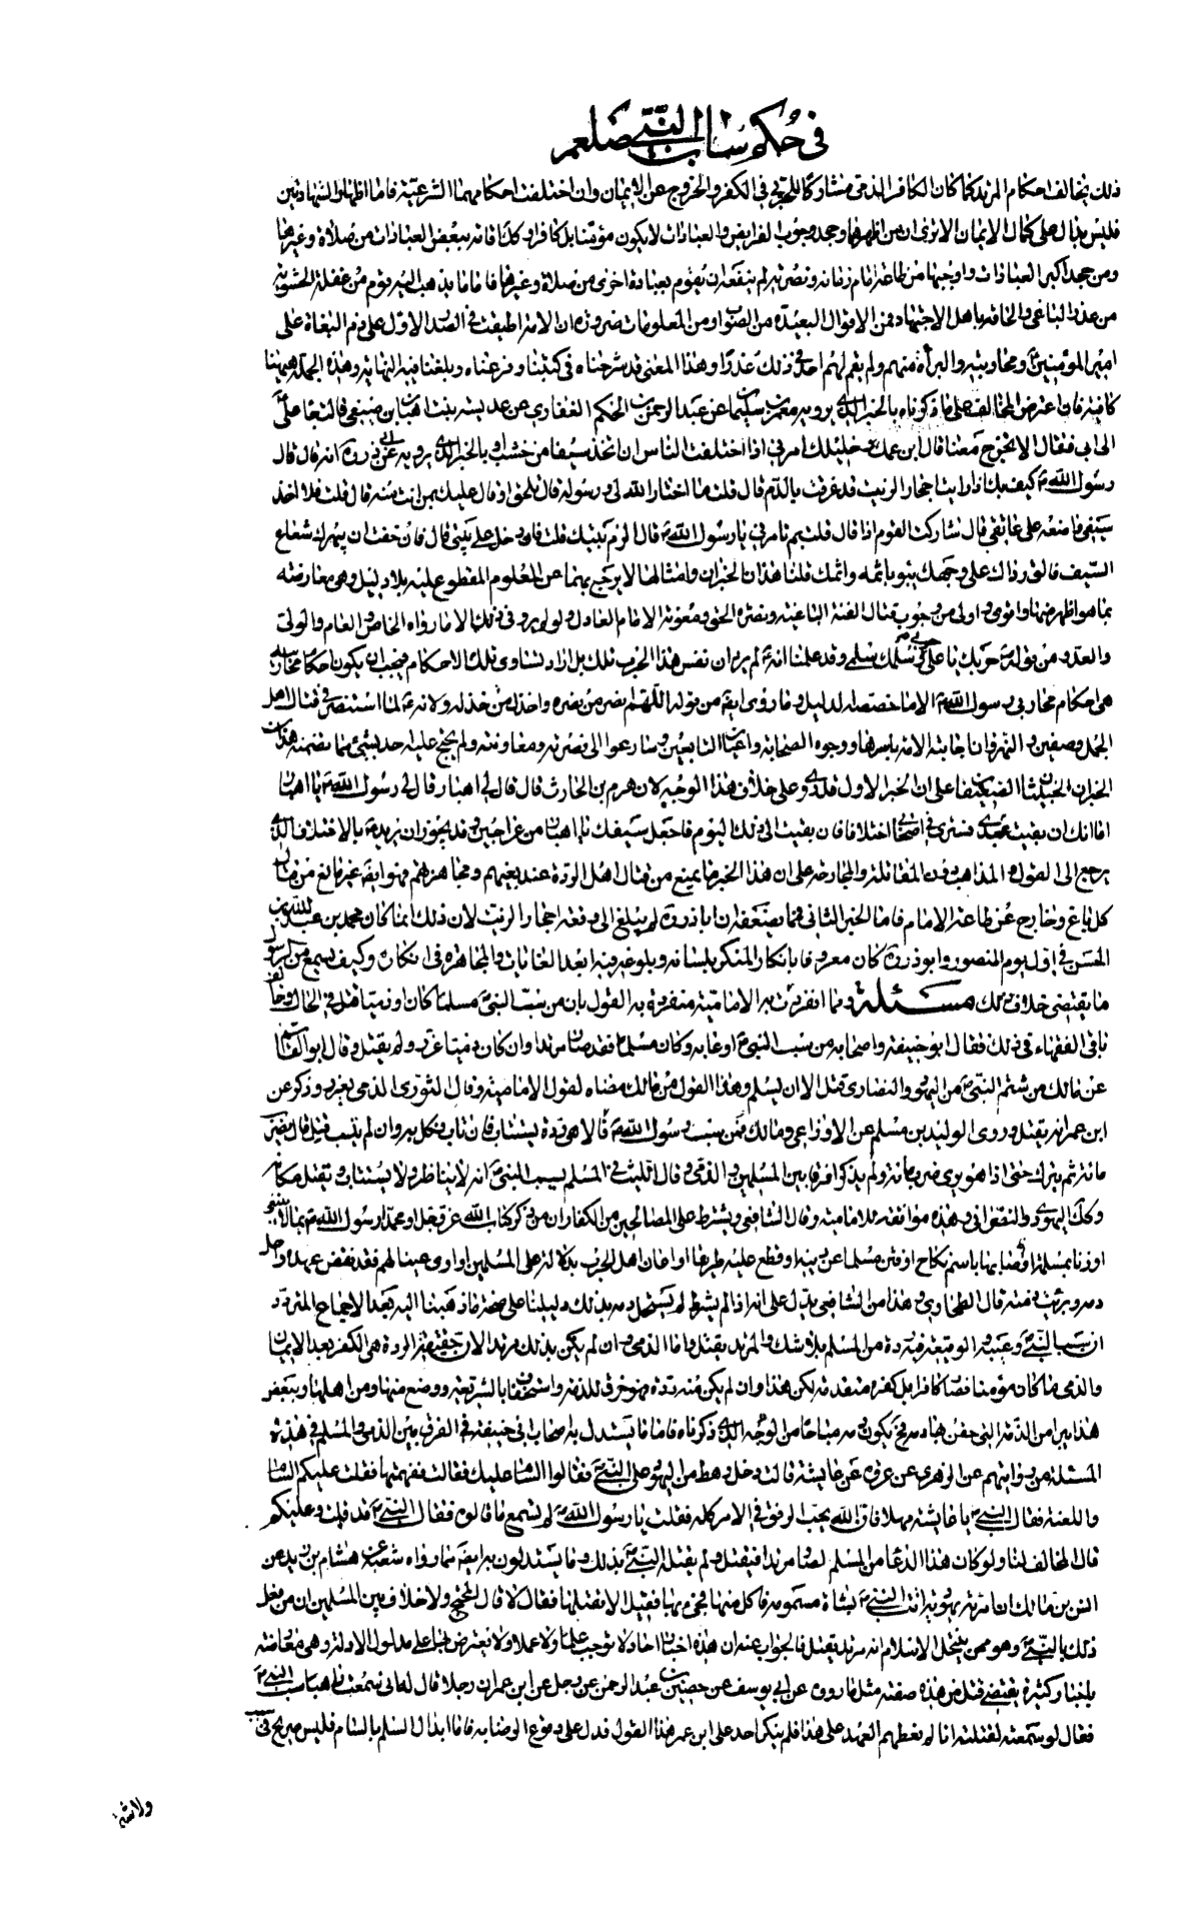 في حكم ساب النبي صلعم
ذلك يخالف احكام المرتد كما كان الكافر الذمي مشاركا للحربي في الكفر والخروج عن الايمان وان اختلفت احكامهما الشرعية فاما اظهار الشهادتين
فليس بدال على كمال الايمان الا ترى ان من اظهرهما وجحد وجوب الفرايض والعبادات لا يكون مؤمنا بل كافرا وكذا اقامته ببعض العبادات من صلاة وغيرها
ومن جحد اكبر العبادات واوجبها من طاعة امام زمانه ونصرته لم ينفعه ان يقوم بعبادة اخرى من صلاة وغيرها فاما ما يذهب اليه قوم من غفلة الحشوية
من عذر الباغي والحاقه باهل الاجتهاد فمن الاقوال البعيدة من الصواب ومن المعلومات ضرورة ان الامة اطبقت في الصدر الاول على ذم البغاة على
امير المؤمنين ومحاربيه والبرأة منهم ولم يقم لهم احد في ذلك عذرا وهذا المعنى قد شرحناه في كتبنا وفرعناه وبلغنا فيه النهاية وهذه الجملة هيهنا
كافية فان اعترض المخالف على ما ذكرناه بالخبر الذي يرويه معمر بن سليمان عن عبد الرحمن بن الحكم الغفاري عن عديسة بنت اهبان بن صيفي قالت جا علي
الى ابي فقال لا تخرج معنا قال ابن عمك وخليلك امرني اذا اختلفت الناس ان اتخذ سيفا من خشب او بالخبر الذي يرويه عن ابي ذر ره انه قال قال
رسول الله ص كيف بك اذا رايت احجار الزيت قد غرقت بالدم قال قلت ما اختار الله لي ورسوله قال تلحق او قال عليك بمن انت منه قال قلت افلا اخذ
سيفي فاضعه على عاتقي قال شاركت القوم اذا قال قلت بم تامرني يا رسول الله قال الزم بيتك قلت فان دخل علي بيتي قال فان خفت ان يبهرك شعاع
السيف فالق رداك على وجهك يبوء باثمه واثمك قلنا هذان الخبران وامثالهما لا يرجع بهما عن المعلوم المقطوع عليه بلا دليل وهي معارضة
بما هو اظهر منها واقوى واولى من وجوب قتال الفئة الباغية ونصرة الحق ومعونة الامام العادل ولو لم يرو في ذلك الا ما رواه الخاص والعام والولي
والعدو من قوله حربك يا علي حربي وسلمك سلمي وقد علمنا انه لم يرد ان نفس هذا الحرب تلك بل اراد تساوي تلك الاحكام فيجب ان يكون احكام محاربيه
هي احكام محاربي رسول الله ص الا ما خصصه الدليل وما روى ايضا من قوله اللهم انصر من نصره واخذل من خذله ولانه ع لما استنصر في قتال اهل
الجمل وصفين والنهروان اجابته الامة باسرها ووجوه الصحابة واعيان التابعين وسارعوا الى نصرته ومعاونته ولم يحتج عليه احد بشيء مما تضمنه هذان
الخبران الخبيثان الضعيفان على ان الخبر الاول قد روى على خلاف هذا الوجه لان هرم بن الحارث قال قال لي اهبان قال لي رسول الله ص يا اهبان
اما انك ان بقيت بعدي فسترى في اصحابي اختلافا فان بقيت الى ذلك اليوم فاجعل سيفك يا اهبان من عراجين وقد يجوز ان نريد بالاختلاف الذي
يرجع الى القول والمذاهب دون المقاتلة والمحاربة على ان هذا الخبر ما يمنع من قتال اهل الردة عند بغيهم ومجاهرتهم فهو ايضا غير مانع من قتال
كل باغ وخارج عن طاعة الامام فاما الخبر الثاني فمما يضعفه ان اباذر ره لم يبلغ الى وقعة احجار الزيت لان ذلك انما كان محمد بن عبد الله بن
الحسن في اول يوم المنصور وابو ذر ره كان معروفا بانكار المنكر بلسانه وبلوغه فيه ابعد الغايات والمجاهرة في انكاره وكيف يسمع من الرسول
ما يقتضي خلاف ذلك مسئلة ومما انفردت به الامامية منفردة به القول بان من سب النبي ص مسلما كان او ذميا قتل في الحال وخالف
باقي الفقهاء في ذلك فقال ابو حنيفة واصحابه من سب النبي ص او عابه وكان مسلما فقد صار مرتدا وان كان ذميا عزر ولم يقتل وقال ابو القاسم
عن مالك من شتم النبي ص من اليهود والنصارى قتل الا ان يسلم وهذا القول من مالك مضاه لقول الامامية وقال الثوري الذمي يعزر وذكر عن
ابن عمر انه يقتل وروى الوليد بن مسلم عن الاوزاعي ومالك فمن سب رسول الله ص قالا هي ردة يستتاب فان تاب نكل به وان لم يتب قتل قال يضرب
مائة ثم يترك حتى اذا هو بري ضرب مائة ولم يذكرا فرقا بين المسلمين والذمي وقال الليث في المسلم يسب النبي ص انه لا يناظر ولا يستتاب ويقتل مكانه
وكذلك اليهودي والنصراني وهذه موافقة للامامية وقال الشافعي ويشترط على المصالحين من الكفار ان من ذكر كتاب الله عز وجل او محمدا رسول الله ص بما لا ينبغي
او زنا بمسلمة او اصابها باسم نكاح او فتن مسلما عن دينه او قطع عليه طريقا او اعان اهل الحرب بدلالة على المسلمين او اوى عينا لهم فقد نقض عهده واحل
دمه وبرئت ذمته قال الطحاوي وهذا من الشافعي يدل على انه اذا لم يشترط لم يستحل دمه بذلك دليلنا على صحة ما ذهبنا اليه بعد الاجماع المتردد
ان سب النبي ص وعيبه والوقيعة فيه ردة من المسلم بلا شك والمرتد يقتل واما الذمي وان لم يكن بذلك مرتدا لان حقيقة الردة هي الكفر بعد الايمان
والذمي ما كان مؤمنا فصار كافرا بل كفره متقدمة لكن هذا وان لم يكن منه ردة فهو خرق للذمة واستخفاف بالشريعة ووضع منها ومن اهلها وببعض
هذا يبرا من الذمة التي حقن بها دمه فحينئذ يكون دمه مباحا من الوجه الذي ذكرناه فاما ما يستدل به اصحاب ابي حنيفة في الفرق بين الذمي والمسلم في هذه
المسئلة من روايتهم عن الزهري عن عروة عن عايشة قالت دخل رهط من اليهود على النبي ص فقالوا السام عليك فقالت ففهمتها فقلت عليكم السام
واللعنة فقال النبي ص يا عايشة مهلا فان الله يحب الرفق في الامر كله فقلت يا رسول الله ص لم تسمع ما قالوه فقال النبي ص قد قلت وعليكم
قال المخالف لنا ولو كان هذا الدعا من المسلم لصار مرتدا فيقتل ولم يقتله النبي ص بذلك وما يستدلون به ايضا مما رواه شعبة عن هشام بن يزيد عن
انس بن مالك ان امرءة يهودية اتت النبي ص بشاة مسمومة فاكل منها فجيء بها فقيل الا تقتلها فقال لا قال المحتج ولا خلاف بين المسلمين ان من فعل
ذلك بالنبي ص وهو ممن ينتحل الاسلام انه مرتد يقتل فالجواب عنه ان هذه اخبار احاد لا توجب علما ولا عملا ولا يعترض بها على مدلول الادلة وهي معارضة
باخبار كثيرة يقتضي قتل من هذه صفته مثل ما رووه عن ابي يوسف عن حصين بن عبد الرحمن عن رجل عن ابن عمر ان رجلا قال له اني سمعت راهبا سب النبي ص
فقال لو سمعته لقتلته انا لم نعطهم العهد على هذا فلم ينكر احد على ابن عمر هذا القول فدل على وقوع الرضا به فاما ابدال السلم بالسام فليس بصريح في سب
ولا شتم